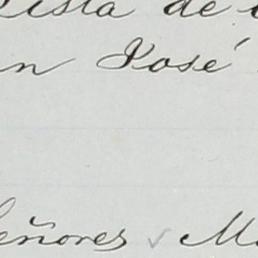 Lista de
n José
Señores Ma